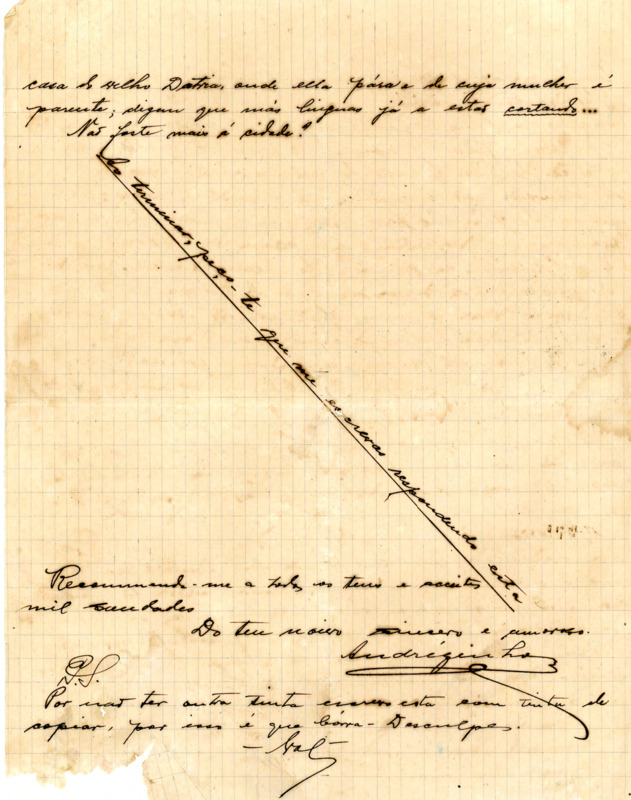 casa do velho Datria, onde ella pára e de cuja mulher é
parente; digam que más linguas já a estar cortando...
Não foste mais á cidade?
Ao terminar, peço-te que me escrevas respondendo esta
Recommenda-me a todos os teus e acceites
mil saudades
Do teu noivo sincero e amoroso.
Andrézinho
P.S.
Por não ter outra tinta escrevo esta com tinta de
copiar, por isso é que bórra - Desculpes.